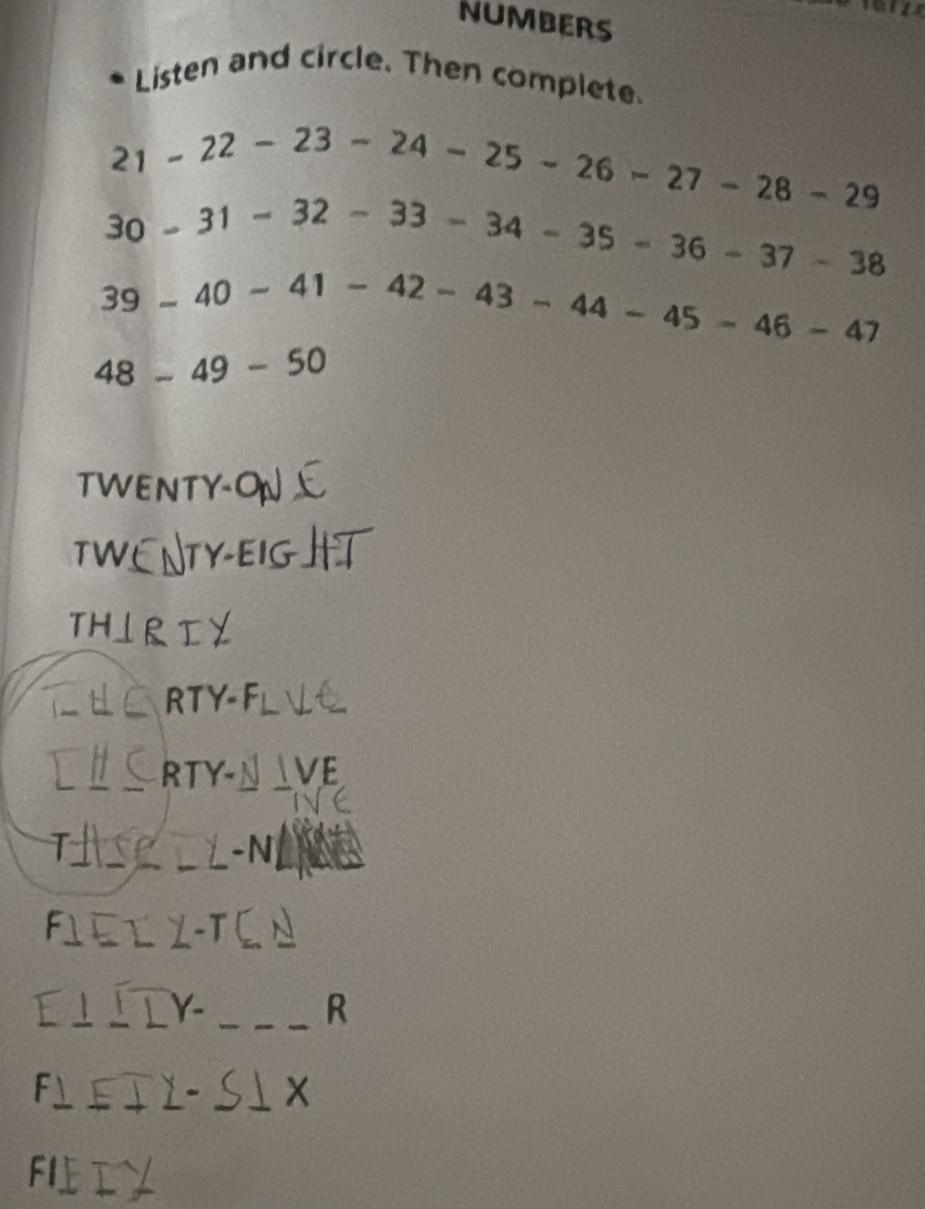 NUMBERS
• Listen and circle. Then complete.
21 - 22 - 23 - 24 - 25 - 26 - 27 - 28 - 29
30 - 31 - 32 - 33 - 34 - 35 - 36 - 37 - 38
39 - 40 - 41 - 42 - 43 - 44 - 45 - 46 - 47
48 - 49 - 50
TWENTY-ONE
TWENTY-EIGHT
THIRTY
THERTY-FIVE
THERTY-NIVE
INE
THIRTY-N
FIFTY-TEN
FIFTY-_ _ _ R
FIFTY-SIX
FIFTY